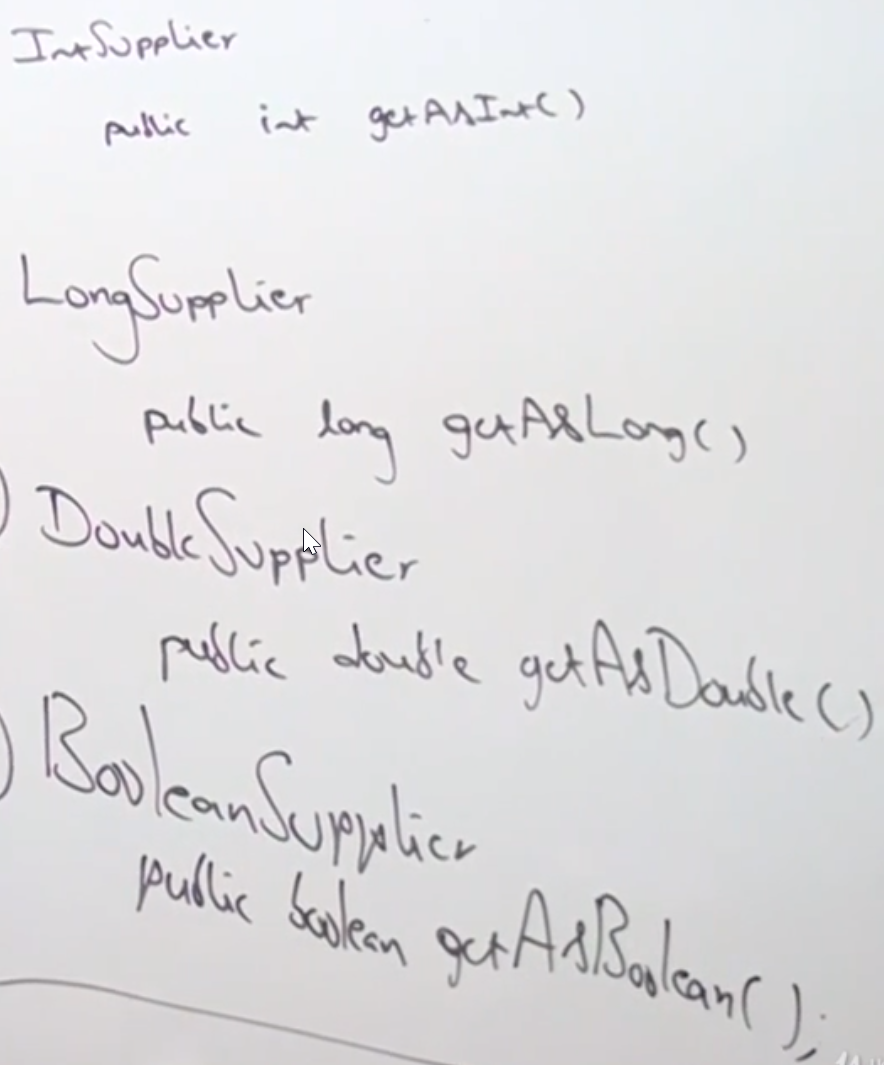 IntSupplier
public int getAsInt()
LongSupplier
public long getAsLong()
) DoubleSupplier
public double getAsDouble()
) BooleanSupplier
public boolean getAsBoolean();